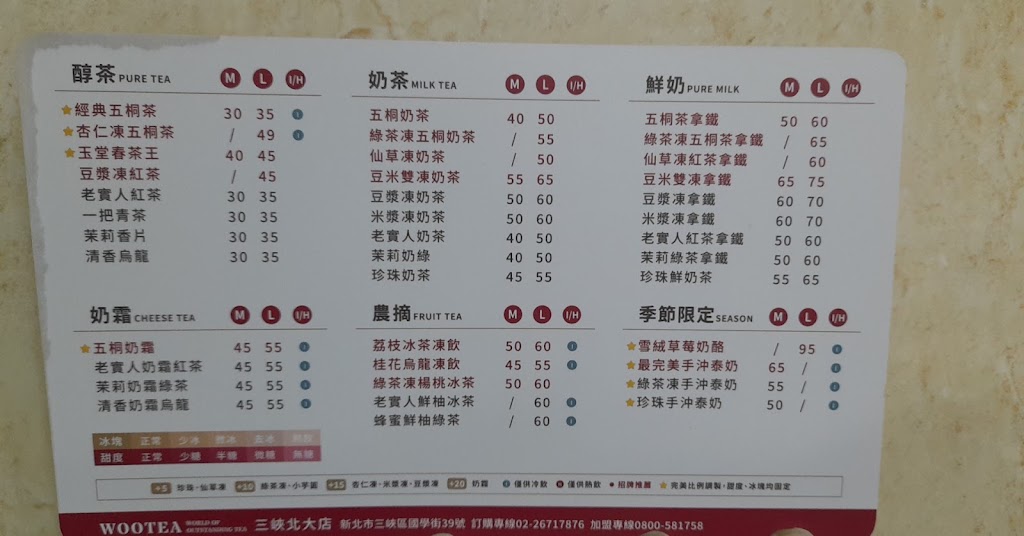 醇茶 PURE TEA M L I/H
★經典五桐茶 30 35
★杏仁凍五桐茶 / 49
★玉堂春茶王 40 45
豆漿凍紅茶 / 45
老實人紅茶 30 35
一把青茶 30 35
茉莉香片 30 35
清香烏龍 30 35
奶茶 MILK TEA M L I/H
五桐奶茶 40 50
綠茶凍五桐奶茶 / 55
仙草凍奶茶 / 50
豆米雙凍奶茶 55 65
豆漿凍奶茶 50 60
米漿凍奶茶 50 60
老實人奶茶 40 50
茉莉奶綠 40 50
珍珠奶茶 45 55
鮮奶 PURE MILK M L I/H
五桐茶拿鐵 50 60
綠茶凍五桐茶拿鐵 / 65
仙草凍紅茶拿鐵 / 60
豆米雙凍拿鐵 65 75
豆漿凍拿鐵 60 70
米漿凍拿鐵 60 70
老實人紅茶拿鐵 50 60
茉莉綠茶拿鐵 50 60
珍珠鮮奶茶 55 65
奶霜 CHEESE TEA M L I/H
★五桐奶霜 45 55
老實人奶霜紅茶 45 55
茉莉奶霜綠茶 45 55
清香奶霜烏龍 45 55
農摘 FRUIT TEA M L I/H
荔枝冰茶凍飲 50 60
桂花烏龍凍飲 45 55
綠茶凍楊桃冰茶 50 60
老實人鮮柚冰茶 / 60
蜂蜜鮮柚綠茶 / 60
季節限定 SEASON M L I/H
★雪絨草莓奶酪 / 95
★最完美手沖泰奶 65 /
★綠茶凍手沖泰奶 55 /
★珍珠手沖泰奶 50 /
冰塊 正常 少冰 微冰 去冰
甜度 正常 少糖 半糖 微糖 無糖
+5 珍珠·仙草凍 +10 綠茶凍·小芋圓 +15 杏仁凍·米漿凍·豆漿凍 +20 奶霜 I 僅供冷飲 H 僅供熱飲 ●招牌推薦 ★完美比例調製，甜度、冰塊均固定
WOOTEA WORLD OF OUTSTANDING TEA 三峽北大店 新北市三峽區國學街39號 訂購專線02-26717876 加盟專線0800-581758